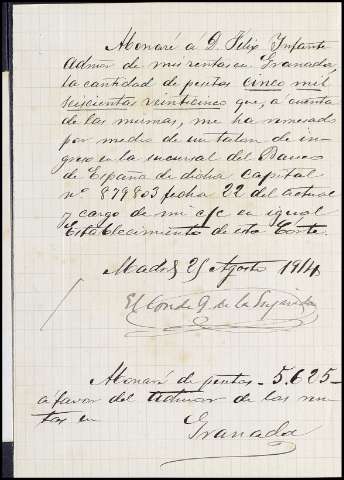 Abonaré á D. Felix Infante
Admor de mis rentas en Granada
la cantidad de pesetas cinco mil
seiscientas veinticinco que, a cuenta
de las mismas, me ha remesado
por medio de un talon de in-
greso en la sucursal del Banco
de España de dicha Capital
nº 879803 fecha 22 del actual
y cargo de mi c/c en igual
Establecimiento de esta Corte.
Madrid 25 Agosto 1914
El Conde de la
Abonaré de pesetas - 5.625 -
á favor del Admor de las ren-
tas en
Granada